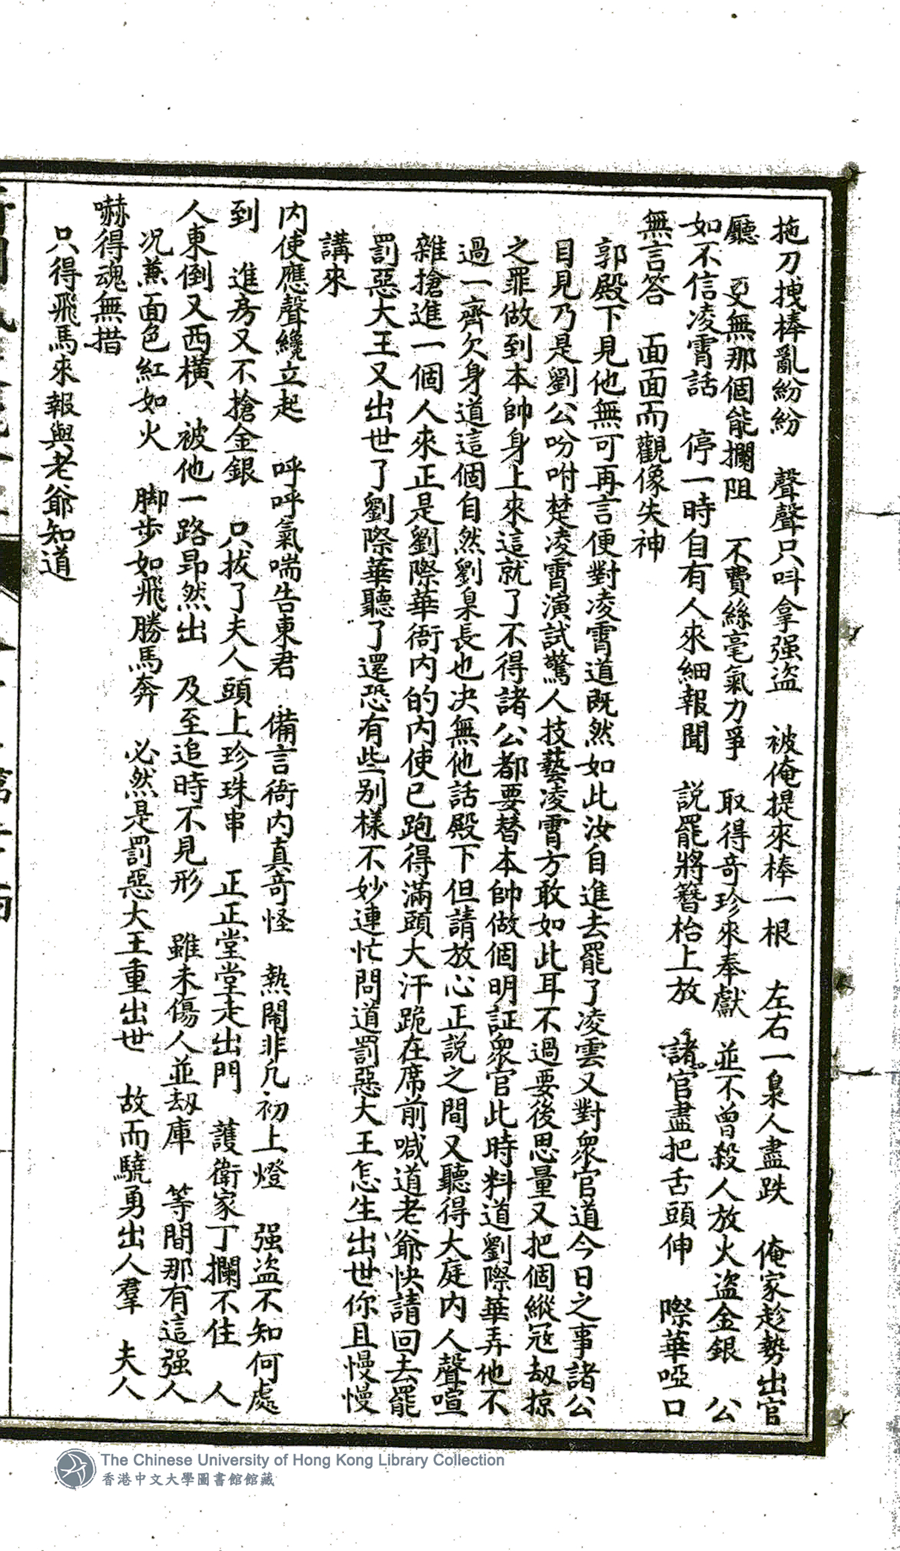 拖刀拽棒亂紛紛　聲聲只叫拿强盜　被俺提來棒一根　左右一臯人盡跌　俺家趁勢出官
廳　更無那個能攔阻　不費絲毫氣力爭　取得奇珍來奉獻　並不曾殺人放火盜金銀　公
如不信凌霄話　停一時自有人來細報聞　説罷將簪枱上放　諸官盡把舌頭伸　際華啞口
無言答　面面而觀像失神
郭殿下見他無可再言便對凌霄道既然如此汝自進去罷了凌雲又對衆官道今日之事諸公
目見乃是劉公吩咐楚凌霄演試驚人技藝凌霄方敢如此耳不過要後思量又把個縱冦刼掠
之罪做到本帥身上來這就了不得諸公都要替本帥做個明証衆官此時料道劉際華弄他不
過一齊欠身道這個自然劉臬長也决無他話殿下但請放心正説之間又聽得大庭内人聲喧
雜搶進一個人來正是劉際華衙内的内使已跑得滿頭大汗跪在席前喊道老爺快請回去罷
罰惡大王又出世了劉際華聽了還恐有些别樣不妙連忙問道罰惡大王怎生出世你且慢慢
講來
内使應聲纔立起　呼呼氣喘告東君　備言衙内真奇怪　熱閙非凡初上燈　强盜不知何處
到　進房又不搶金銀　只拔了夫人頭上珍珠串　正正堂堂走出門　護衛家丁攔不住　人
人東倒又西横　被他一路昻然出　及至追時不見形　雖未傷人並刼庫　等間那有這强人
况兼面色紅如火　脚步如飛勝馬奔　必然是罰惡大王重出世　故而驍勇出人羣　夫人
嚇得魂無措
只得飛馬來報與老爺知道
The Chinese University of Hong Kong Library Collection
香港中文大學圖書館館藏